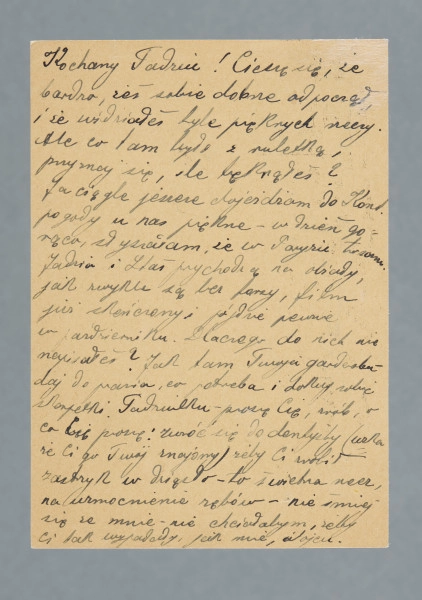 Kochany Tadziu! Cieszę się, że
bardzo, żeś sobie dobrze odpoczął,
i że widziałeś tyle pięknych rzeczy.
Ale co tam było z ruletką,
przyznaj się, ile
Ja ciągle jeszcze dojeżdżam do Konst.
pogody u nas piękne – w dzień go-
rąco, słyszałam, że w Paryżu to samo.
Jadzia i Staś przychodzą na obiady,
jak zwykle są bez forsy, film
już skończony, jeżdżą pewnie
w październiku. Dlaczego do nich nie
napisałeś? Jak tam Twoja garderoba
daj do prania, co potrzeba i
skarpetki. Tadziulku – proszę Cię, zrób, o
co Cię proszę: zwróć się do dentysty (
że Ci go Twój znajomy) żeby Ci zrobił
zastrzyk w dziąsło – to świetna rzecz,
na wzmocnienie zębów – nie śmiej
się ze mnie – nie chciałabym, żeby
Ci tak wypadały, jak mnie, i Ojcu.